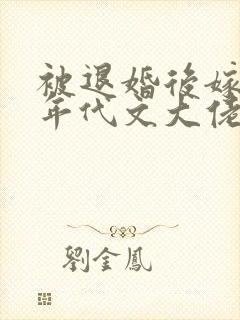 被退婚後嫁
年代文大佬
劉金鳳